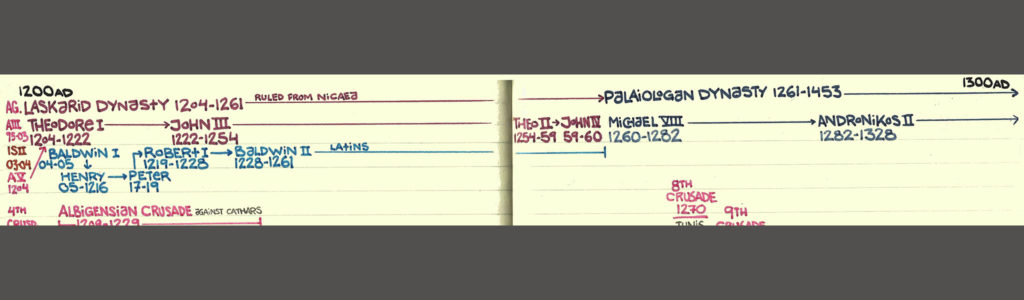 1200AD
AG. LASKARID DYNASTY 1204-1261 RULED FROM NICAEA
AIII THEODORE I JOHN III
95-03 1204-1222 1222-1254
ISII BALDWIN I ROBERT I BALDWIN II LATINS
03-04 04-05 1219-1228 1228-1261
AV HENRY PETER
1204 05-1216 17-19
4TH ALBIGENSIAN CRUSADE AGAINST CATHARS
CRUSD 1209-1229
1300AD
PALAIOLOGAN DYNASTY 1261-1453
THEO II JOHN IV MICHAEL VIII ANDRONIKOS II
1254-59 59-60 1260-1282 1282-1328
8TH
CRUSADE
1270 9TH
TUNIS CRUSADE